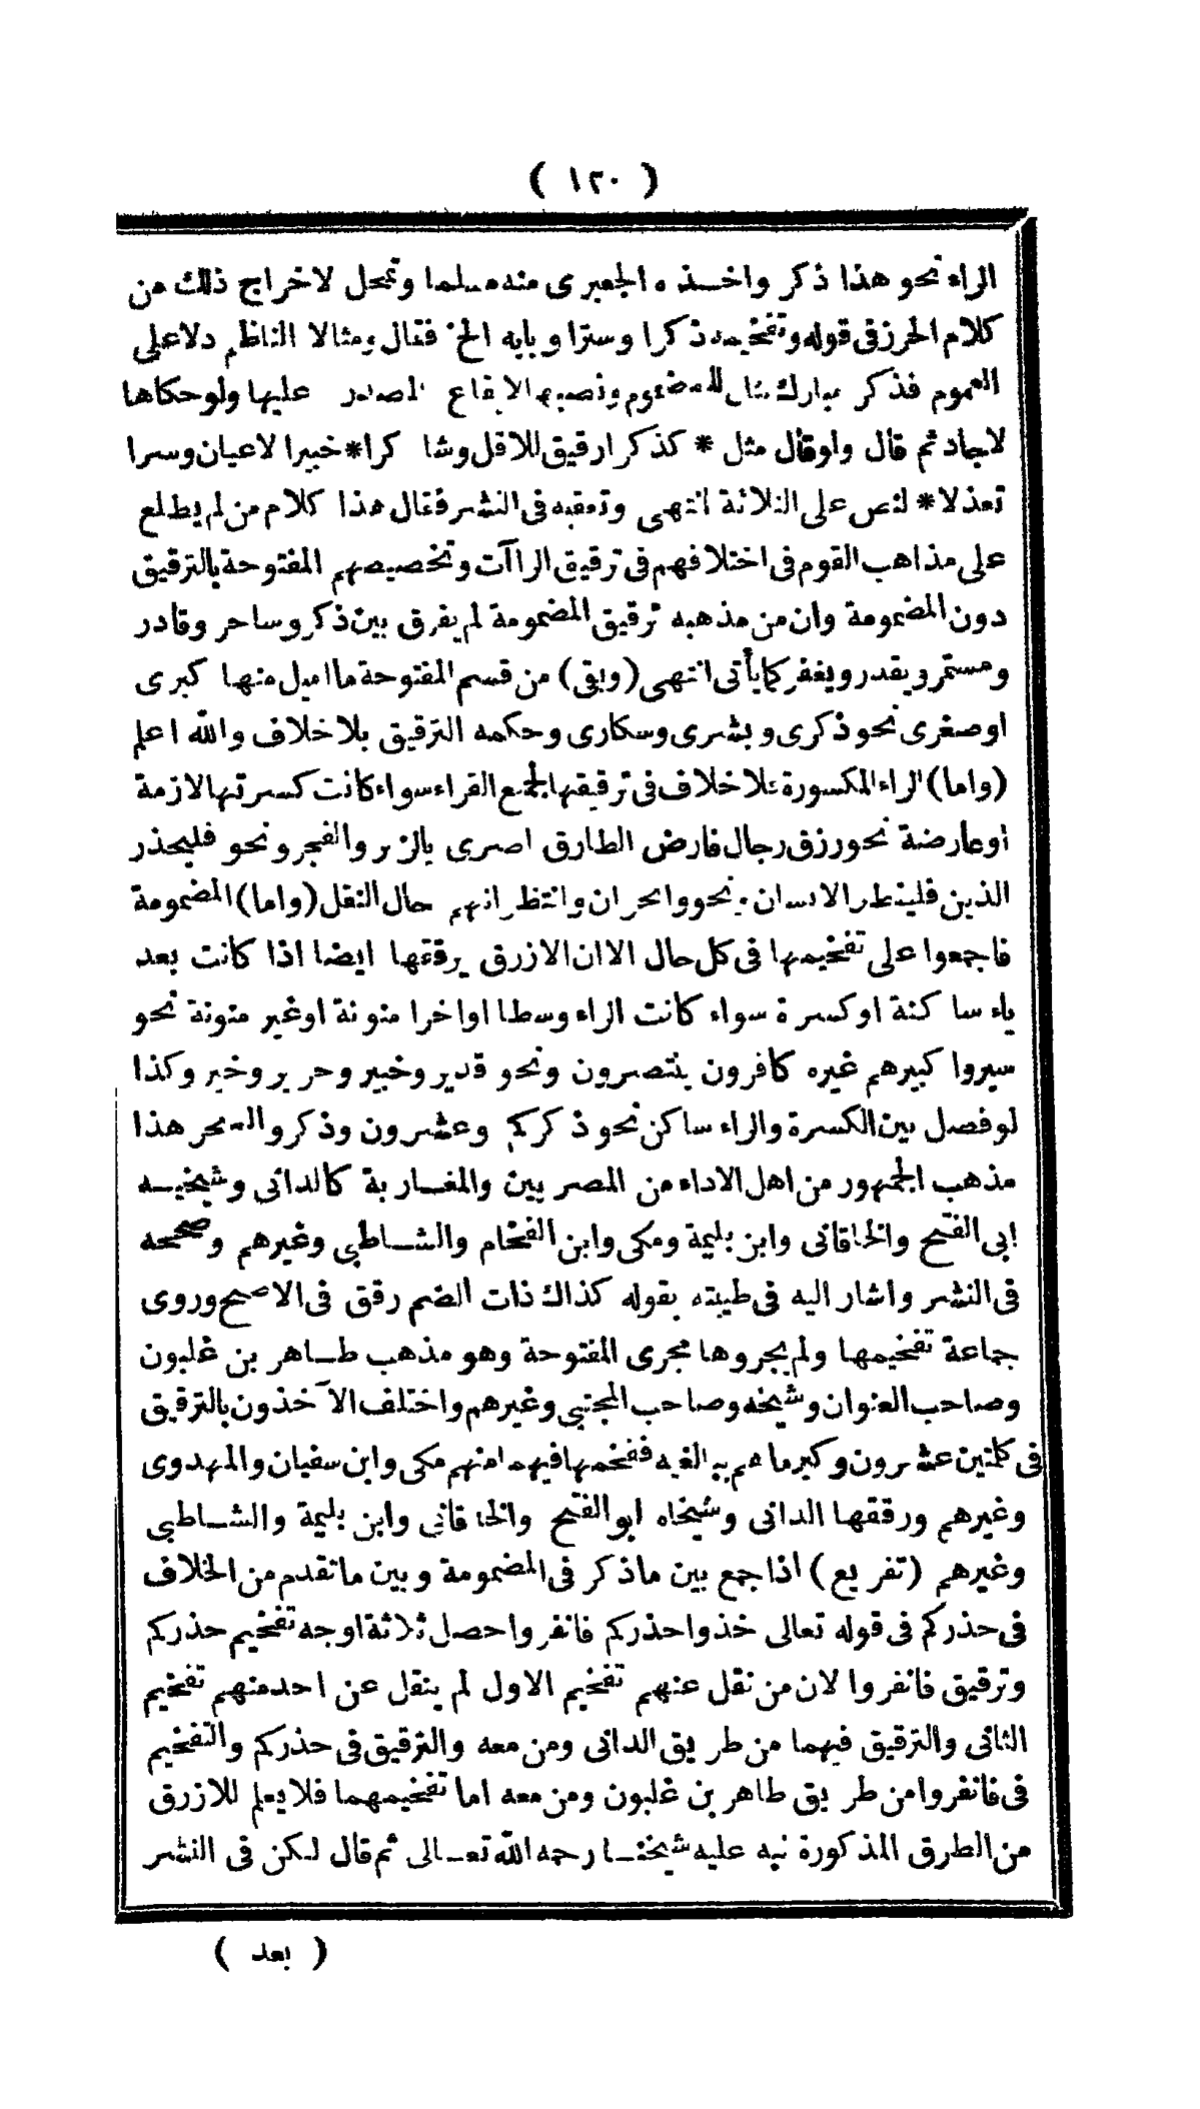 ( ١٢٠ )
الراء نحو هذا ذكر واخـذه الجعبرى منه مسلما وتمحل لاخراج ذلك من
كلام الحرز فى قوله وتفخيمه ذكرا وسترا وبابه الخ فقال ومثالا الناظم دلا على
العموم فذكر مبارك مثال للمضموم ونصبها لايقاع المصدر عليها ولو حكاها
لاجاد ثم قال ولو قال مثل * كذكرا رقيق للاقل وشا كرا * خبيرا لاعيان وسرا
تعذلا * لنص على الثلاثة انتهى وتعقبه فى النشر فقال هذا كلام من لم يطلع
على مذاهب القوم فى اختلافهم فى ترقيق الراآت وتخصيصهم المفتوحة بالترقيق
دون المضمومة وان من مذهبه ترقيق المضمومة لم يفرق بين ذكر وساحر وقادر
ومستمر ويقدر ويغفر كما يأتى انتهى (وبقى) من قسم المفتوحة ما اميل منها كبرى
او صغرى نحو ذكرى وبشرى وسكارى وحكمه الترقيق بلا خلاف والله اعلم
(واما) الراء المكسورة فلا خلاف فى ترقيقها لجميع القراء سواء كانت كسرتها لازمة
او عارضة نحو رزق رجال فارض الطارق اصرى بالزبر والفجر ونحو فليحذر
الذين فلينظر الانسان ونحو وانحر ان وانتظر انهم حال النقل (واما) المضمومة
فاجمعوا على تفخيمها فى كل حال الا ان الازرق يرققها ايضا اذا كانت بعد
ياء ساكنة او كسرة سواء كانت الراء وسطا او اخرا منونة او غير منونة نحو
سيروا كبيرهم غيره كافرون ينتصرون ونحو قدير وخبير وحرير وخير وكذا
لو فصل بين الكسرة والراء ساكن نحو ذكركم وعشرون وذكر والسحر هذا
مذهب الجمهور من اهل الاداء من المصريين والمغـاربة كالدانى وشيخيـه
ابى الفتح والخاقانى وابن بليمة ومكى وابن الفحام والشـاطبى وغيرهم وصححه
فى النشر واشار اليه فى طيبته بقوله كذاك ذات الضم رقق فى الاصح وروى
جماعة تفخيمها ولم يجروها مجرى المفتوحة وهو مذهب طـاهر بن غلبون
وصاحب العنوان وشيخه وصاحب المجتبى وغيرهم واختلف الآخذون بالترقيق
فى كلمتين عشرون وكبر ما هم ببالغيه ففخمها فيهما منهم مكى وابن سفيان والمهدوى
وغيرهم ورققها الدانى وشيخاه ابو الفتح والخاقانى وابن بليمة والشـاطبى
وغيرهم (تفريع) اذا جمع بين ما ذكر فى المضمومة وبين ما تقدم من الخلاف
فى حذركم فى قوله تعالى خذوا حذركم فانفروا حصل ثلاثة اوجه تفخيم حذركم
وترقيق فانفروا لان من نقل عنهم تفخيم الاول لم ينقل عن احد منهم تفخيم
الثانى والترقيق فيهما من طريق الدانى ومن معه والترقيق فى حذركم والتفخيم
فى فانفروا من طريق طاهر بن غلبون ومن معه اما تفخيمهما فلا يعلم للازرق
من الطرق المذكورة نبه عليه شيخنـا رحمه الله تعـالى ثم قال لـكن فى النشر
( بعد )